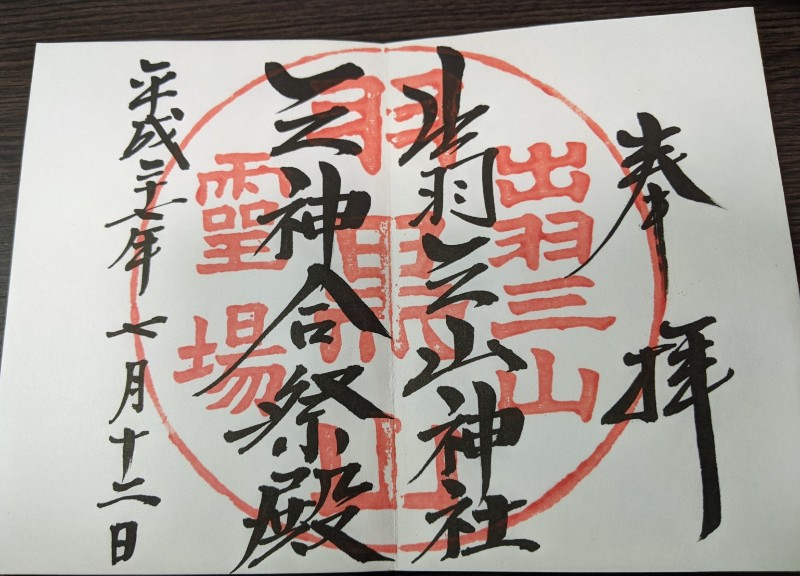 奉拝
出羽三山神社
三神合祭殿
平成二十七年七月十二日
出羽三山
羽黒山
靈場